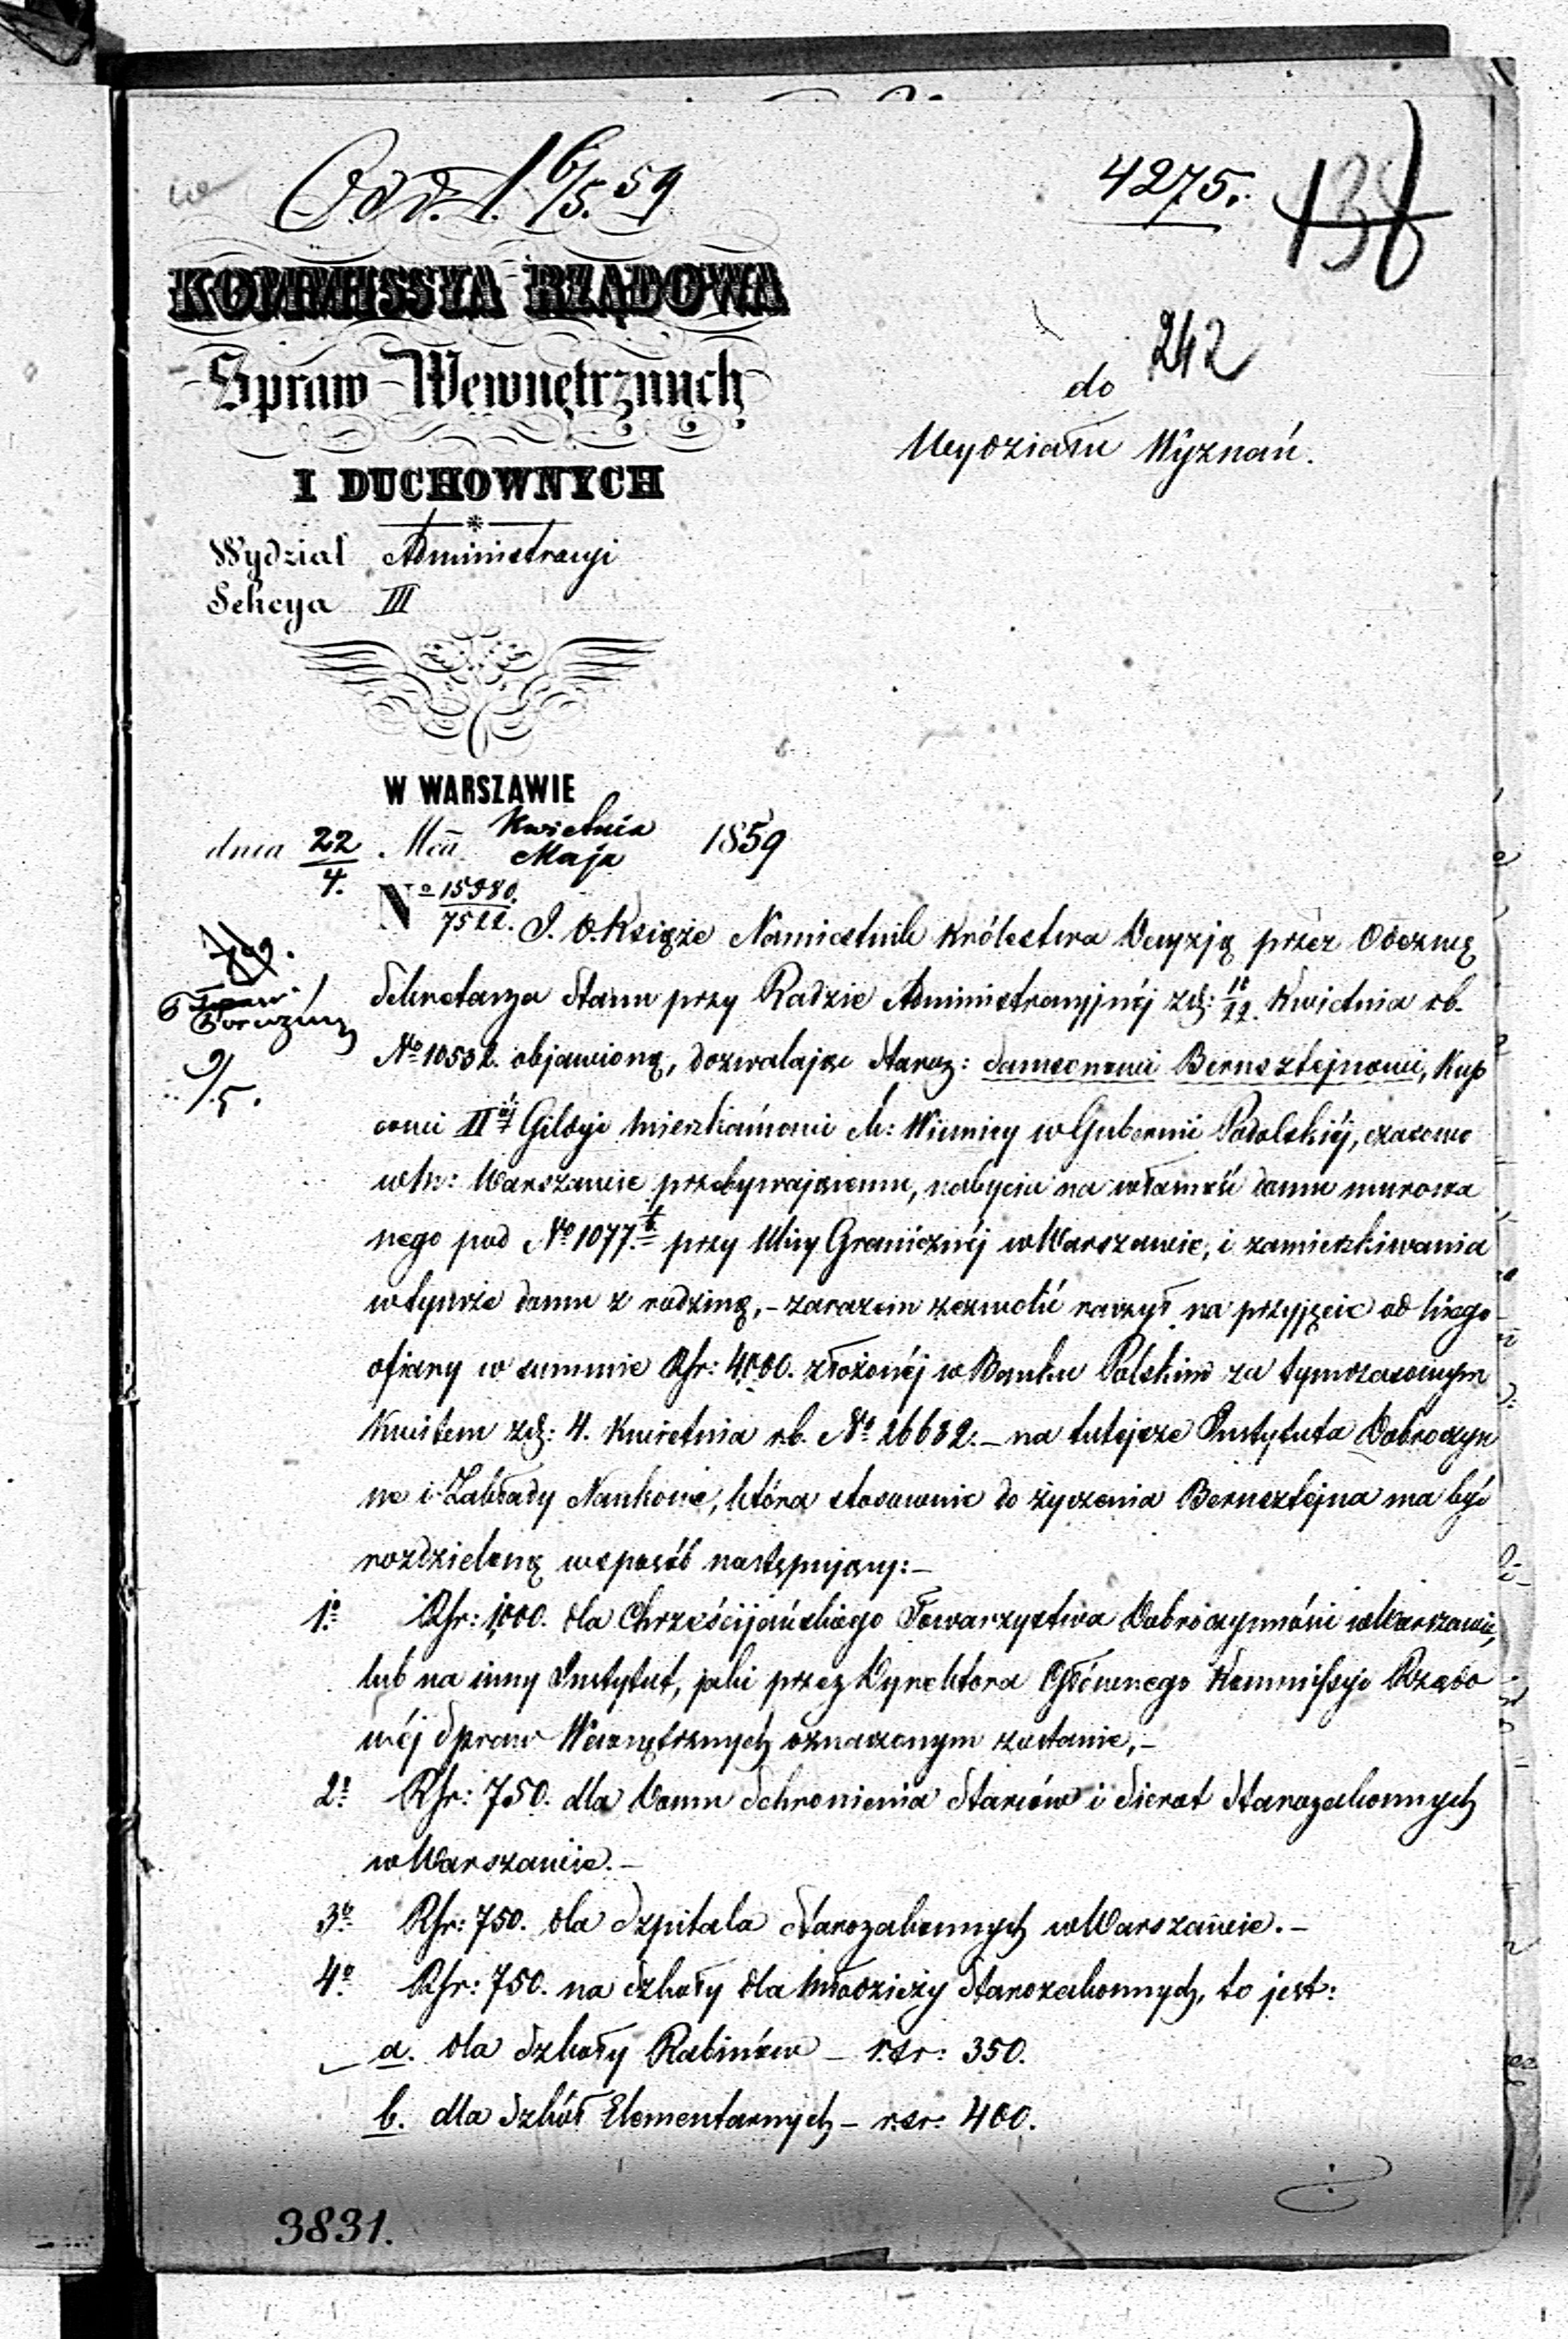 Odd. d. 6/5. 59
4275.
138
KOMMISSYA RZĄDOWA
Spraw Wewnętrznych
I DUCHOWNYCH
242
do
Wydziału Wyznań.
Wydział Administracyi
Sekcya III
W WARSZAWIE
dnia 22/4. Mca Kwietnia/Maja 1859
No 15980./7522.
J. O. Książe Namiestnik Królestwa Decyzją przez Odezwę
Sekretarza Stanu przy Radzie Administracyjnéj z d: 10/22. Kwietnia rb.
No 10532. objawioną, dozwalając Staroz: Samsonowi Bernsztejnowi, Kup
cowi IIéj Gildyi mieszkańcowi M: Winnicy w Gubernii Podolskiéj, czasowo
w M: Warszawie przebywającemu, nabycia na własność domu murowa
nego pod No 1077. b przy Ulicy Granicznéj w Warszawie, i zamieszkiwania
w tymże domu z rodziną, – zarazem zezwolić raczył na przyjęcie od niego
ofiary w summie Rsr: 4,000. złożonéj w Banku Polskim za tymczasowym
Kwitem z d: 4. Kwietnia r.b. No 26632. – na tutejsze Instytuta Dobroczyn
ne i Zakłady Naukowe, która stosownie do życzenia Bernsztejna ma być
rozdzieloną w sposób następujący: –
1o Rsr: 1,000. dla Chrześcijańskiego Towarzystwa Dobroczynności w Warszawie,
lub na inny Instytut, jaki przez Dyrektora Głównego Kommissyi Rządo
wéj Spraw Wewnętrznych oznaczonym zostanie, –
2o Rsr: 750. dla Domu Schronienia Starców i Sierot Starozakonnych
w Warszawie. –
3o Rsr: 750. dla Szpitala Starozakonnych w Warszawie. –
4o Rsr: 750. na szkoły dla Młodzieży Starozakonnych, to jest:
a. dla Szkoły Rabinów – r.sr: 350.
b. dla Szkół Elementarnych – r.sr: 400.
9/5.
3831.